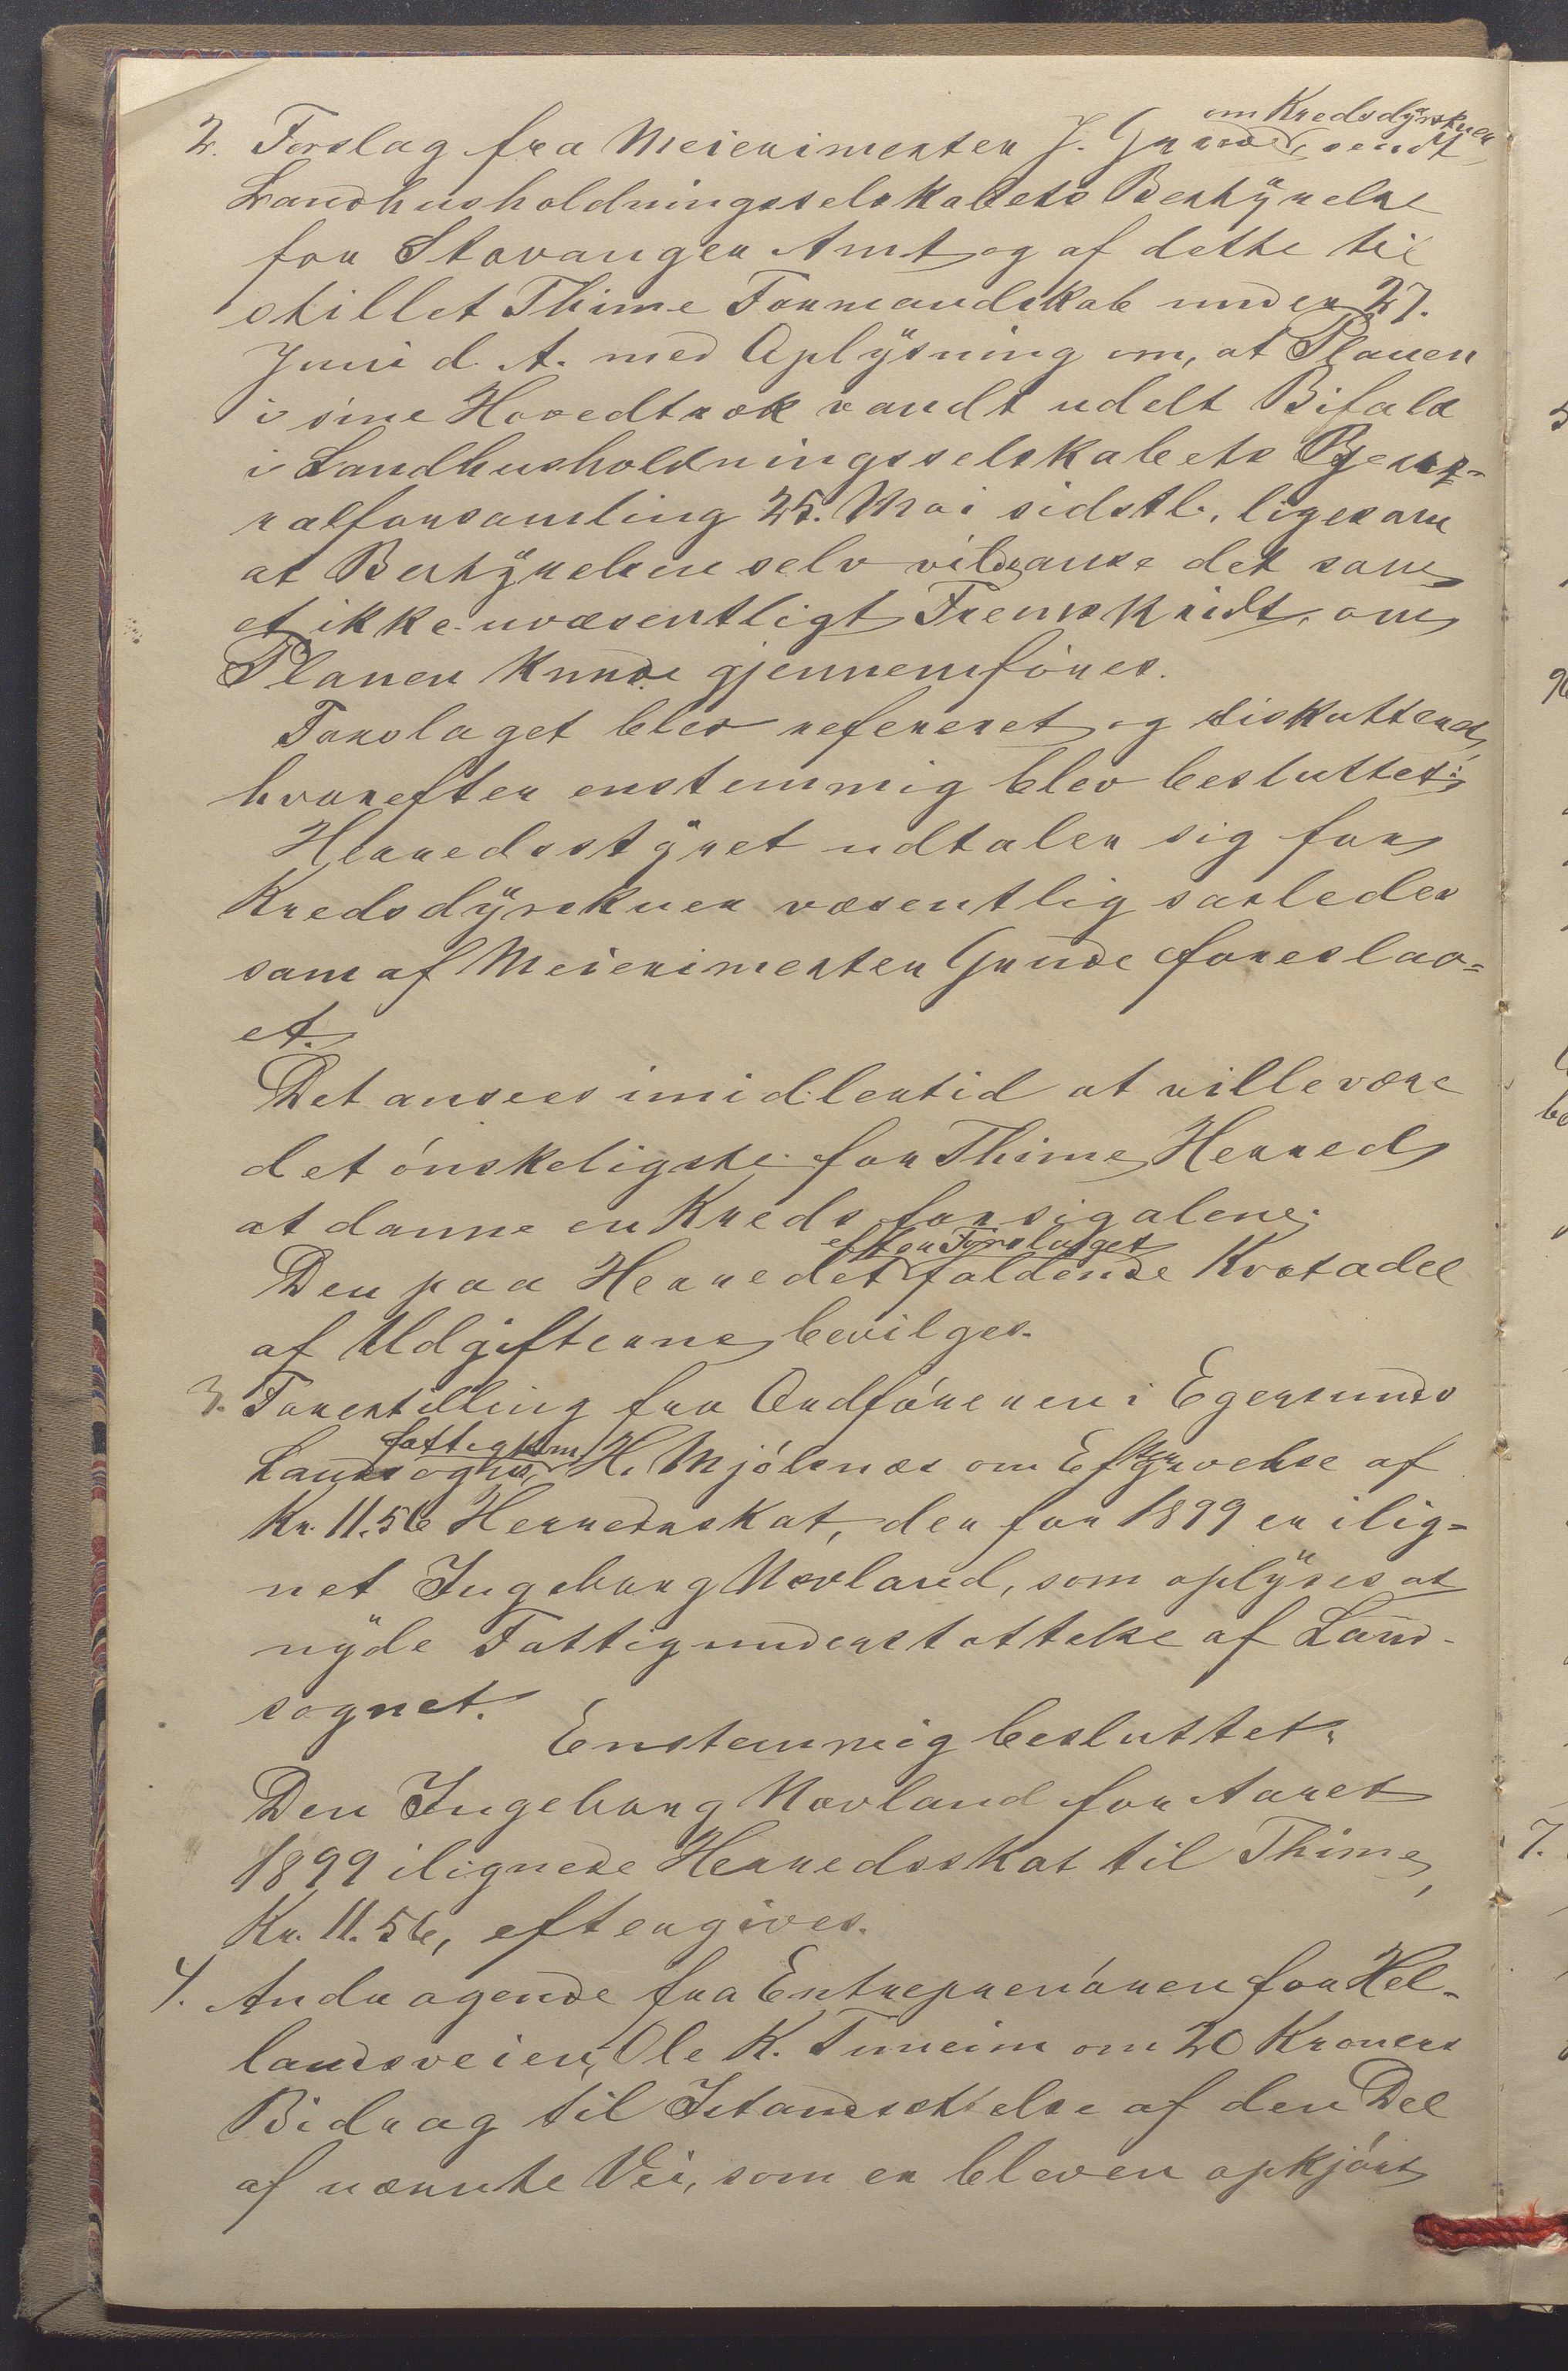 om Kredsdyrskuer
2. Forslag fra Meierimester J. Grude, sendt
Landhusholdningsselskabets Bestyrelse
for Stavanger Amt og af dette til
stillet Thime Formandskab under 27.
Juni d. A. med Oplysning om, at Planen
i sine Hovedtræk vandt udelt Bifald
i Landhusholdningsselskabets Gene-
ralforsamling 25. Mai sidstl., ligesom
at Bestyrelsen selv vilde anse det som
et ikke uvæsentligt Fremskridt, om
Planen kunde gjennemföres.
Forslaget blev refereret og diskutteret,
hvorefter enstemmig blev besluttet:
Herredsstyret udtaler sig for
Kredsdyrskuer væsentlig saaledes
som af Meierimester Grude foreslaa-
et.
Det ansees imidlertid at ville være
det ónskeligste for Thime Herred
at danne en Kreds for sig alene.
efter Forslaget
Den paa Herredet faldende Kvotadel
af Udgifterne bevilges.
3. Forestilling fra Ordföreren i Egersunds
fattigkom
Landsogns, H. Mjólsnæs om Eftergivelse af
Kr. 11.56 Herredsskat, der for 1899 er ilig-
net Ingeborg Norland, som oplyses at
nyde Fattigunderstøttelse af Land-
sognet.
Enstemmig besluttet:
Den Ingeborg Norland for Aaret
1899 ilignede Herredsskat til Thime,
Kr. 11.56, eftergives.
4. Andragende fra Entreprenóren for Hel-
landsveien, Ole K. Tuneim om 20 Kroners
Bidrag til Istandsettelse af den Del
af nævnte Vei, som er bleven opkjört